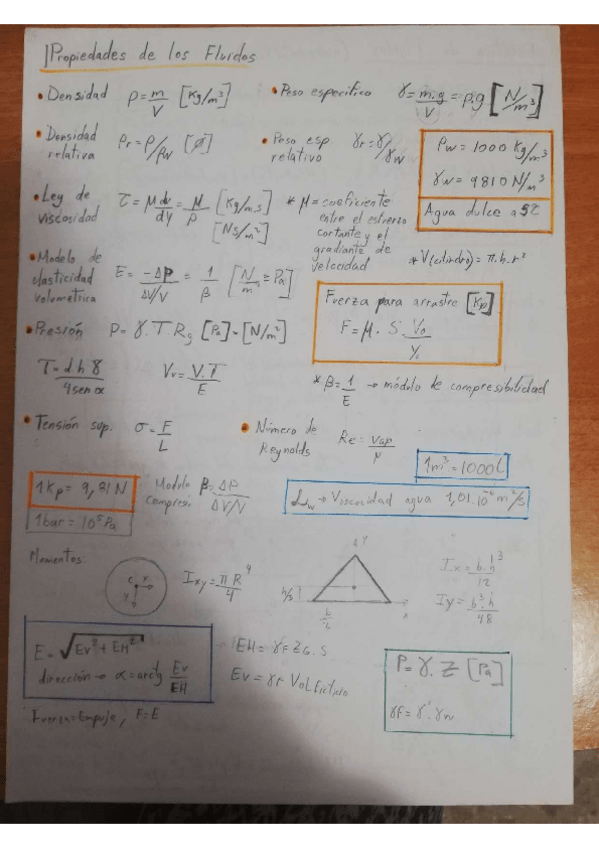 Propiedades de los Fluidos
• Densidad ρ = m/V [Kg/m³]
• Peso especifico γ = m.g/V = ρ.g [N/m³]
• Densidad relativa ρr = ρ/ρw [Ø]
• Peso esp. relativo γr = γ/γw
ρw = 1000 Kg/m³
γw = 9810 N/m³
Agua dulce a
• Ley de viscosidad τ = μ dv/dy = μ/ρ [Kg/m.s]
[Ns/m²]
* μ = coeficiente
entre el esfuerzo
cortante y el
gradiante de
velocidad
* V(cilindro) = π.h.r²
• Modelo de
elasticidad
volumetrica
E = -ΔP/(ΔV/V) = 1/β [N/m² = Pa]
Fuerza para arrastre [Kp]
F = μ. S. Vo/Yo
• Presión P = γ.T Rg [Pa] = [N/m²]
T = d h γ/4 sen α
Vv = V.T/E
* β = 1/E → módulo de compresibilidad
• Tensión sup. σ = F/L
• Número de Reynolds Re = vap/μ
1m³ = 1000L
1Kp = 9,81N
1bar = 10⁵ Pa
Modulo compres. β = ΔP/(ΔV/V)
w → Viscocidad agua 1,01.10⁻⁶ m²/s
Momentos:
c x
y
Ixy = π R⁴/4
y
h/3
b/2
x
Ix = b.h³/12
Iy = b³.h/48
E = √(Ev² + EH²)
dirección → α = arctg Ev/EH
EH = γF ZG. S
Ev = γF Vol Ficticio
P = γ. Z [Pa]
γF = γ'. γw
Fuerza = Empuje, F = E